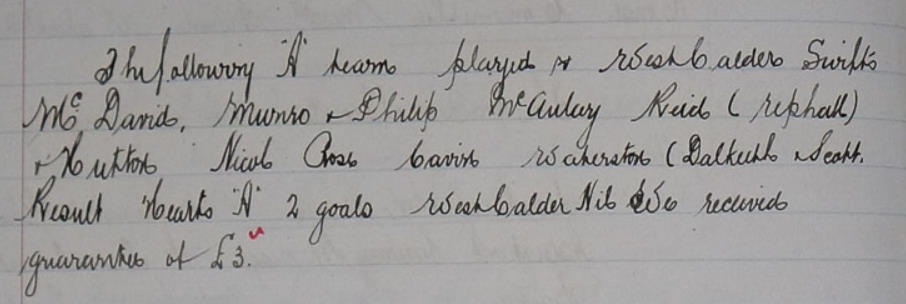 The following "A" team played v West Calder Swifts
McDavid, Munro & Philip McAulay Reid (rephall)
& Hutton Nicol Cross Cavin Waherston (Dalkeith & Scott.
Result Hearts "A" 2 goals West Calder Nil We received
guarantee of £3.